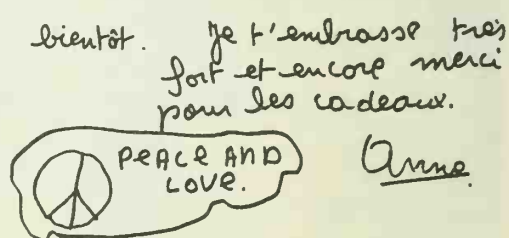 bientôt. Je t'embrasse très
fort et encore merci
pour les cadeaux.
PEACE AND
LOVE.
Anne.